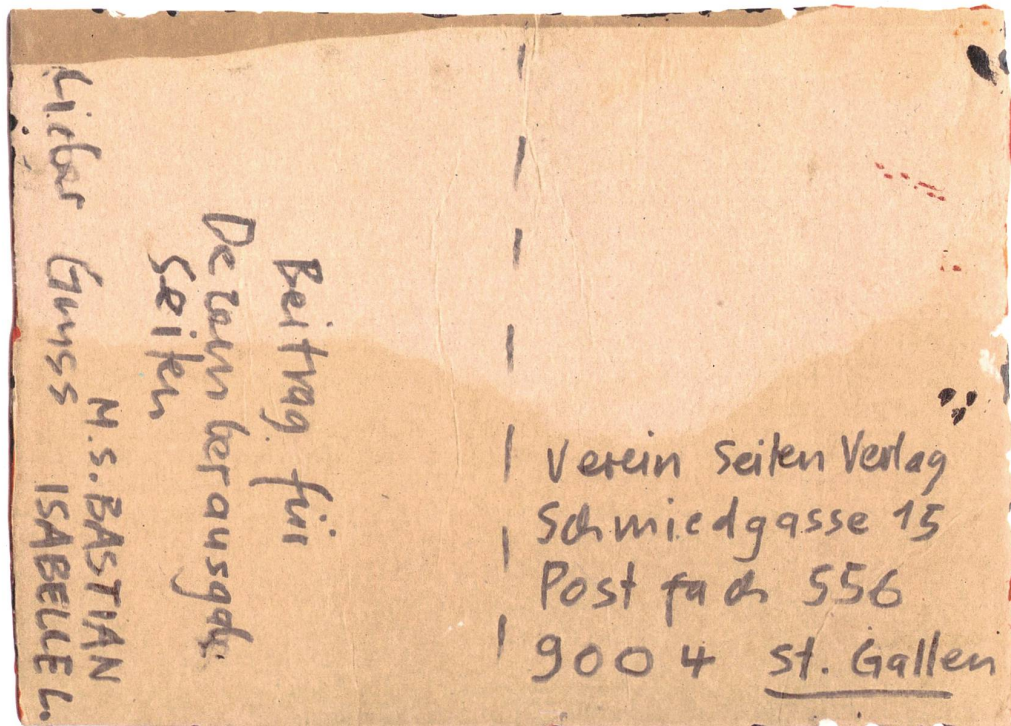 Beitrag für
Dezemberausgabe
Seiten
Lieber Gruss
M.S. BASTIAN
ISABELLE L.
Verein Seiten Verlag
Schmiedgasse 15
Postfach 556
9004 St. Gallen